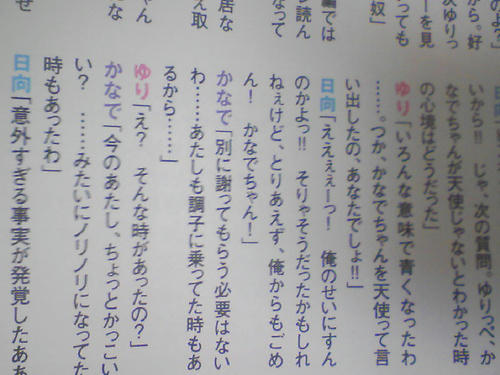 から。好
次ゆりっ
ーを見
っても
奴」
編では
ン読ん
なって
居な
え取
ちゃん
な
ぜ
いから!!　じゃ、次の質問。ゆりっぺ、か
なでちゃんが天使じゃないとわかった時
の心境はどうだった」
ゆり「いろんな意味で青くなったわ
……。つか、かなでちゃんを天使って言
い出したの、あなたでしょ!!」
日向「えええぇーっ!　俺のせいにすん
のかよっ!!　そりゃそうだったかもしれ
ねぇけど、とりあえず、俺からもごめ
ん!　かなでちゃん!」
かなで「別に謝ってもらう必要はない
わ……あたしも調子に乗ってた時もあ
るから……」
ゆり「え?　そんな時があったの?」
かなで「今のあたし、ちょっとかっこい
い?　……みたいにノリノリになってた
時もあったわ」
日向「意外すぎる事実が発覚したああ